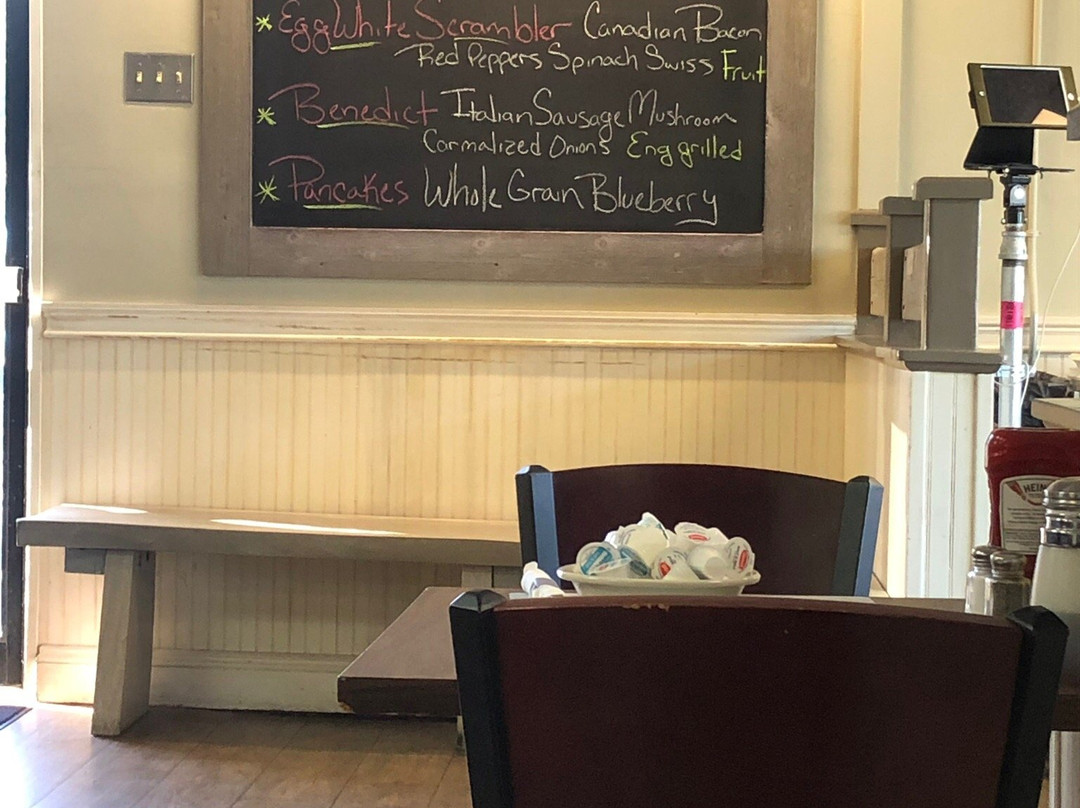 * Egg White Scrambler Canadian Bacon
Red Peppers Spinach Swiss Fruit
* Benedict Italian Sausage Mushroom
Carmalized Onions Eng grilled
* Pancakes Whole Grain Blueberry
HEIN